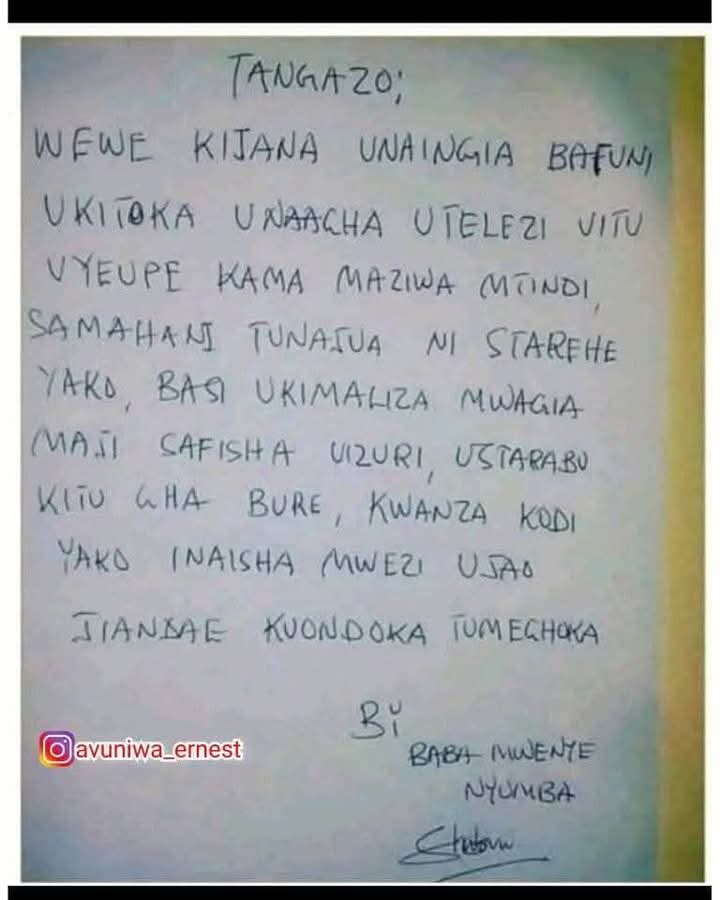 TANGAZO;
WEWE KIJANA UNAINGIA BAFUNI
UKITOKA UNAACHA UTELEZI VITU
VYEUPE KAMA MAZIWA MTINDI,
SAMAHANI TUNAJUA NI STAREHE
YAKO, BASI UKIMALIZA MWAGIA
MAJI SAFISHA VIZURI, USTARABU
KITU CHA BURE, KWANZA KODI
YAKO INAISHA MWEZI UJAO
JIANDAE KUONDOKA TUMECHOKA
BY
BABA MWENYE
NYUMBA
avuniwa_ernest